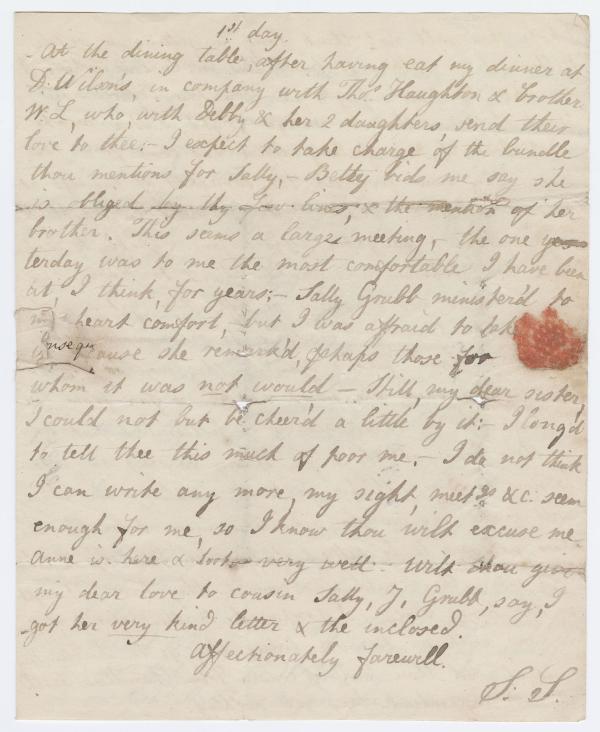 1st day.
At the dining table, after having eat my dinner at
D: Wilson's, in company with Thos. Haughton & brother
W. L, who, with Debby & her 2 daughters, send their
love to thee;- I expect to take charge of the bundle
thou mentions for Sally,- Betty bids me say she
is obliged by thy few lines, & the mention of her
brother. This seems a large meeting,- the one yes
terday was to me the most comfortable I have been
at, I think, for years;- Sally Grubb minister'd to
my heart comfort, but I was afraid to
cause she remark'd perhaps those for
whom it was not would - Still, my dear sister,
I could not but be cheer'd a little by it:- I long'd
to tell thee this much of poor me.- I do not think
I can write any more, my sight, meetgs &c: seem
enough for me, so I know thou wilt excuse me
Anne is here & looks very well. Wilt thou give
my dear love to cousin Sally, J, Grubb, say, I
got her very kind letter & the inclosed.
Affectionately farewell.
S: S.